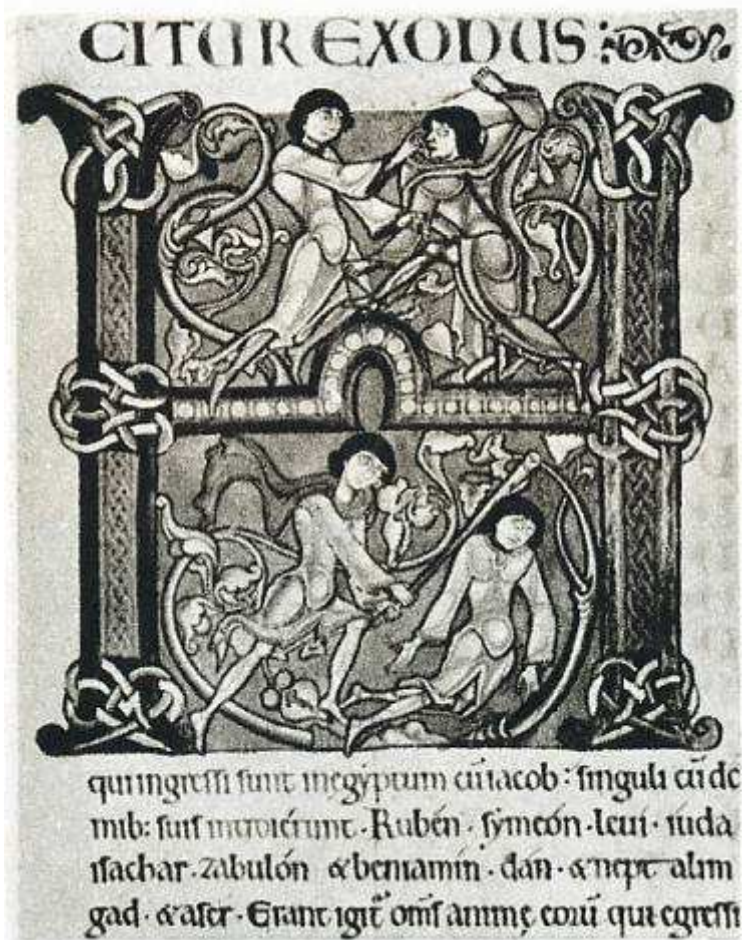 CITUR EXODUS
H
qui ingressi sunt in egyptum cū iacob: singuli cū do
mib: suis introierunt. Rubén. syméon. leui. iuda
issachar. zabulón & beniamin. dan. & nept alim
gad. & aser. Erant igit̄ om̄s anime eorū qui egressi